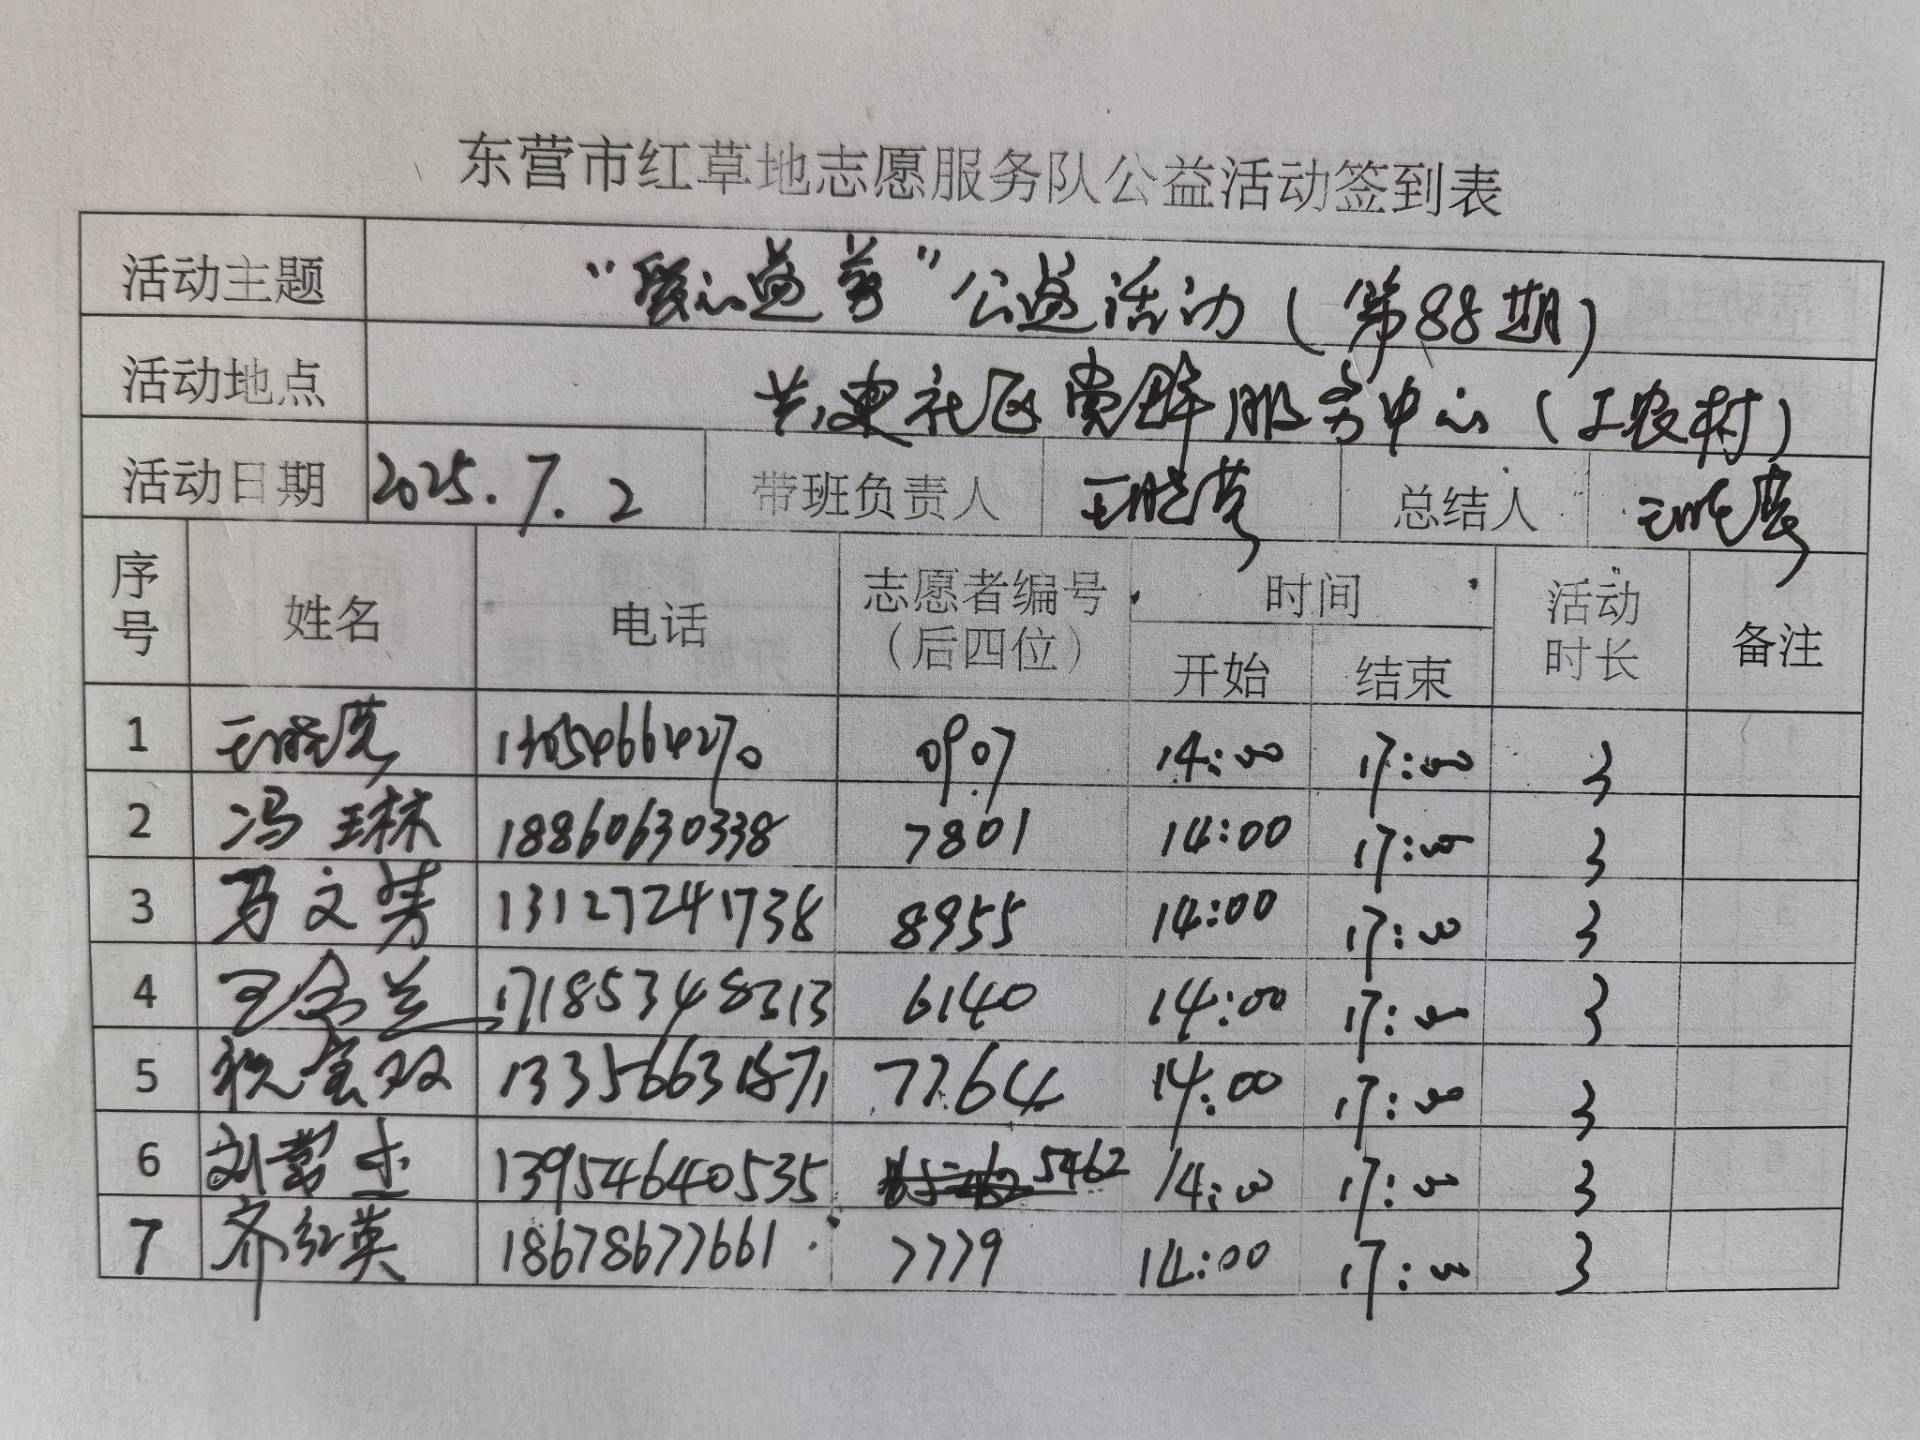 东营市红草地志愿服务队公益活动签到表
活动主题 “爱心益剪”公益活动(第88期)
活动地点 共建社区党群服务中心(工农村)
活动日期 2025.7.2 带班负责人 王晓莹 总结人 王晓莹
序号 姓名 电话 志愿者编号(后四位) 时间 活动时长 备注
开始 结束
1 王晓莹 0907 14:00 17:00 3
2 冯琳 18860630338 7801 14:00 17:00 3
3 马文芳 13127241738 8955 14:00 17:00 3
4 王兰 17185348313 6140 14:00 17:00 3
5 祝宝双 7764 14:00 17:00 3
6 刘营 13954640535 5462 14:00 17:00 3
7 齐红英 18678677661 7779 14:00 17:00 3